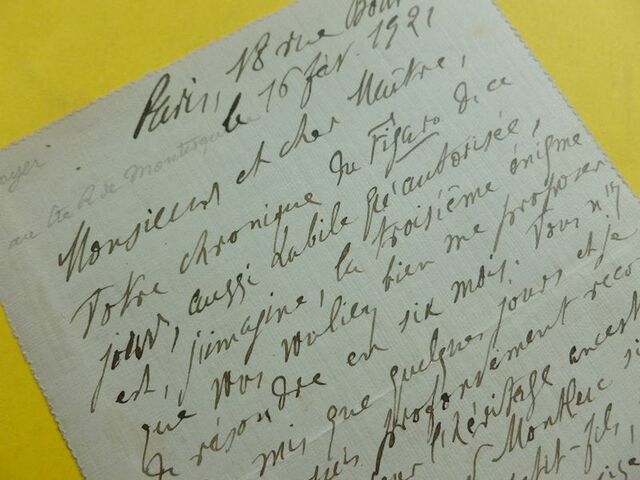 Paris, 18 rue
le 16 fév. 1921
oyer
au Cte R de Montesqu
Monsieur et cher Maître,
Votre chronique du Figaro de ce
jour, aussi habile qu'autorisée,
est, j'imagine, la troisième énigme
que vous vouliez bien me proposer
de résoudre en six mois. Vous n'y
mis que quelques jours et je
profondément reco
l'héritage ancest
Montluc si
tit-fils,